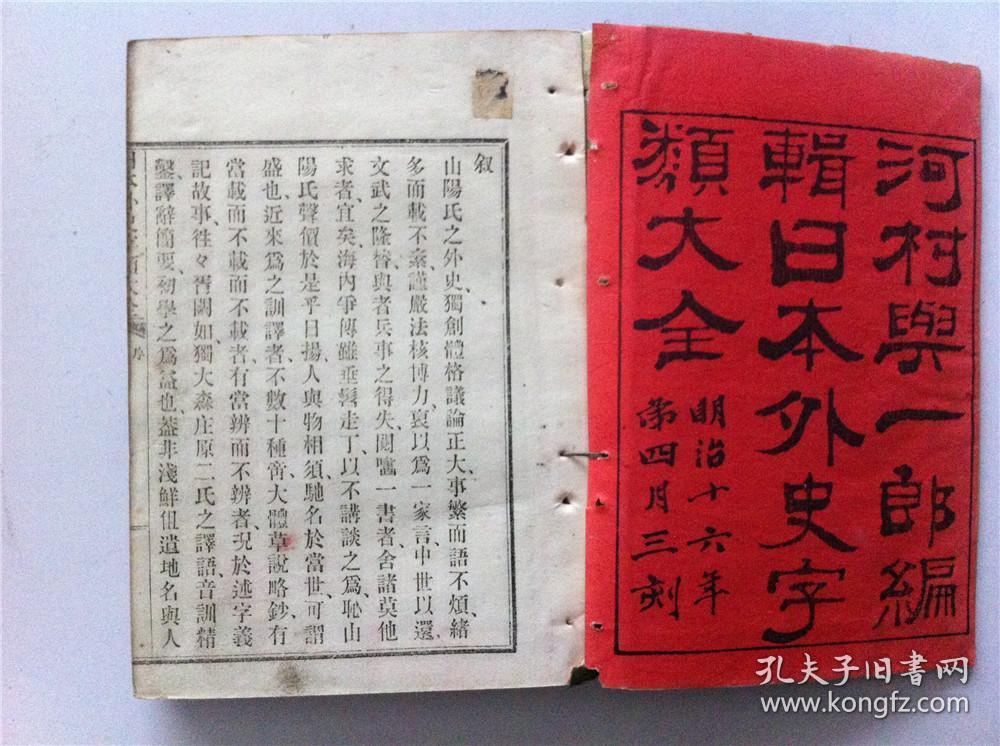 河村與一郎編
輯日本外史字
類大全
明治十六年
第四月三刻
叙
山陽氏之外史、獨創體格議論正大、事繁而語不煩、緒
多而載不紊、謹嚴法核博力、裒以爲一家言、中世以還
文武之隆替、與者兵事之得失、閱
一書者、舍諸莫他
求者、宜矣、海內爭傳雖垂髫走丁、以不講談之爲恥、山
陽氏聲價於是乎日揚、人與物相須、馳名於當世、可謂
盛也、近來爲之訓譯者、不數十種、啻大體草說略鈔、有
當載而不載而不載者、有當辨而不辨者、況於述字義
記故事、徃々胥闕如、獨大森庄原二氏之譯語、音訓精
鑿、譯辭簡要、初學之爲益也、蓋非淺鮮、但遺地名與人
序
孔夫子旧書网
www.kongfz.com